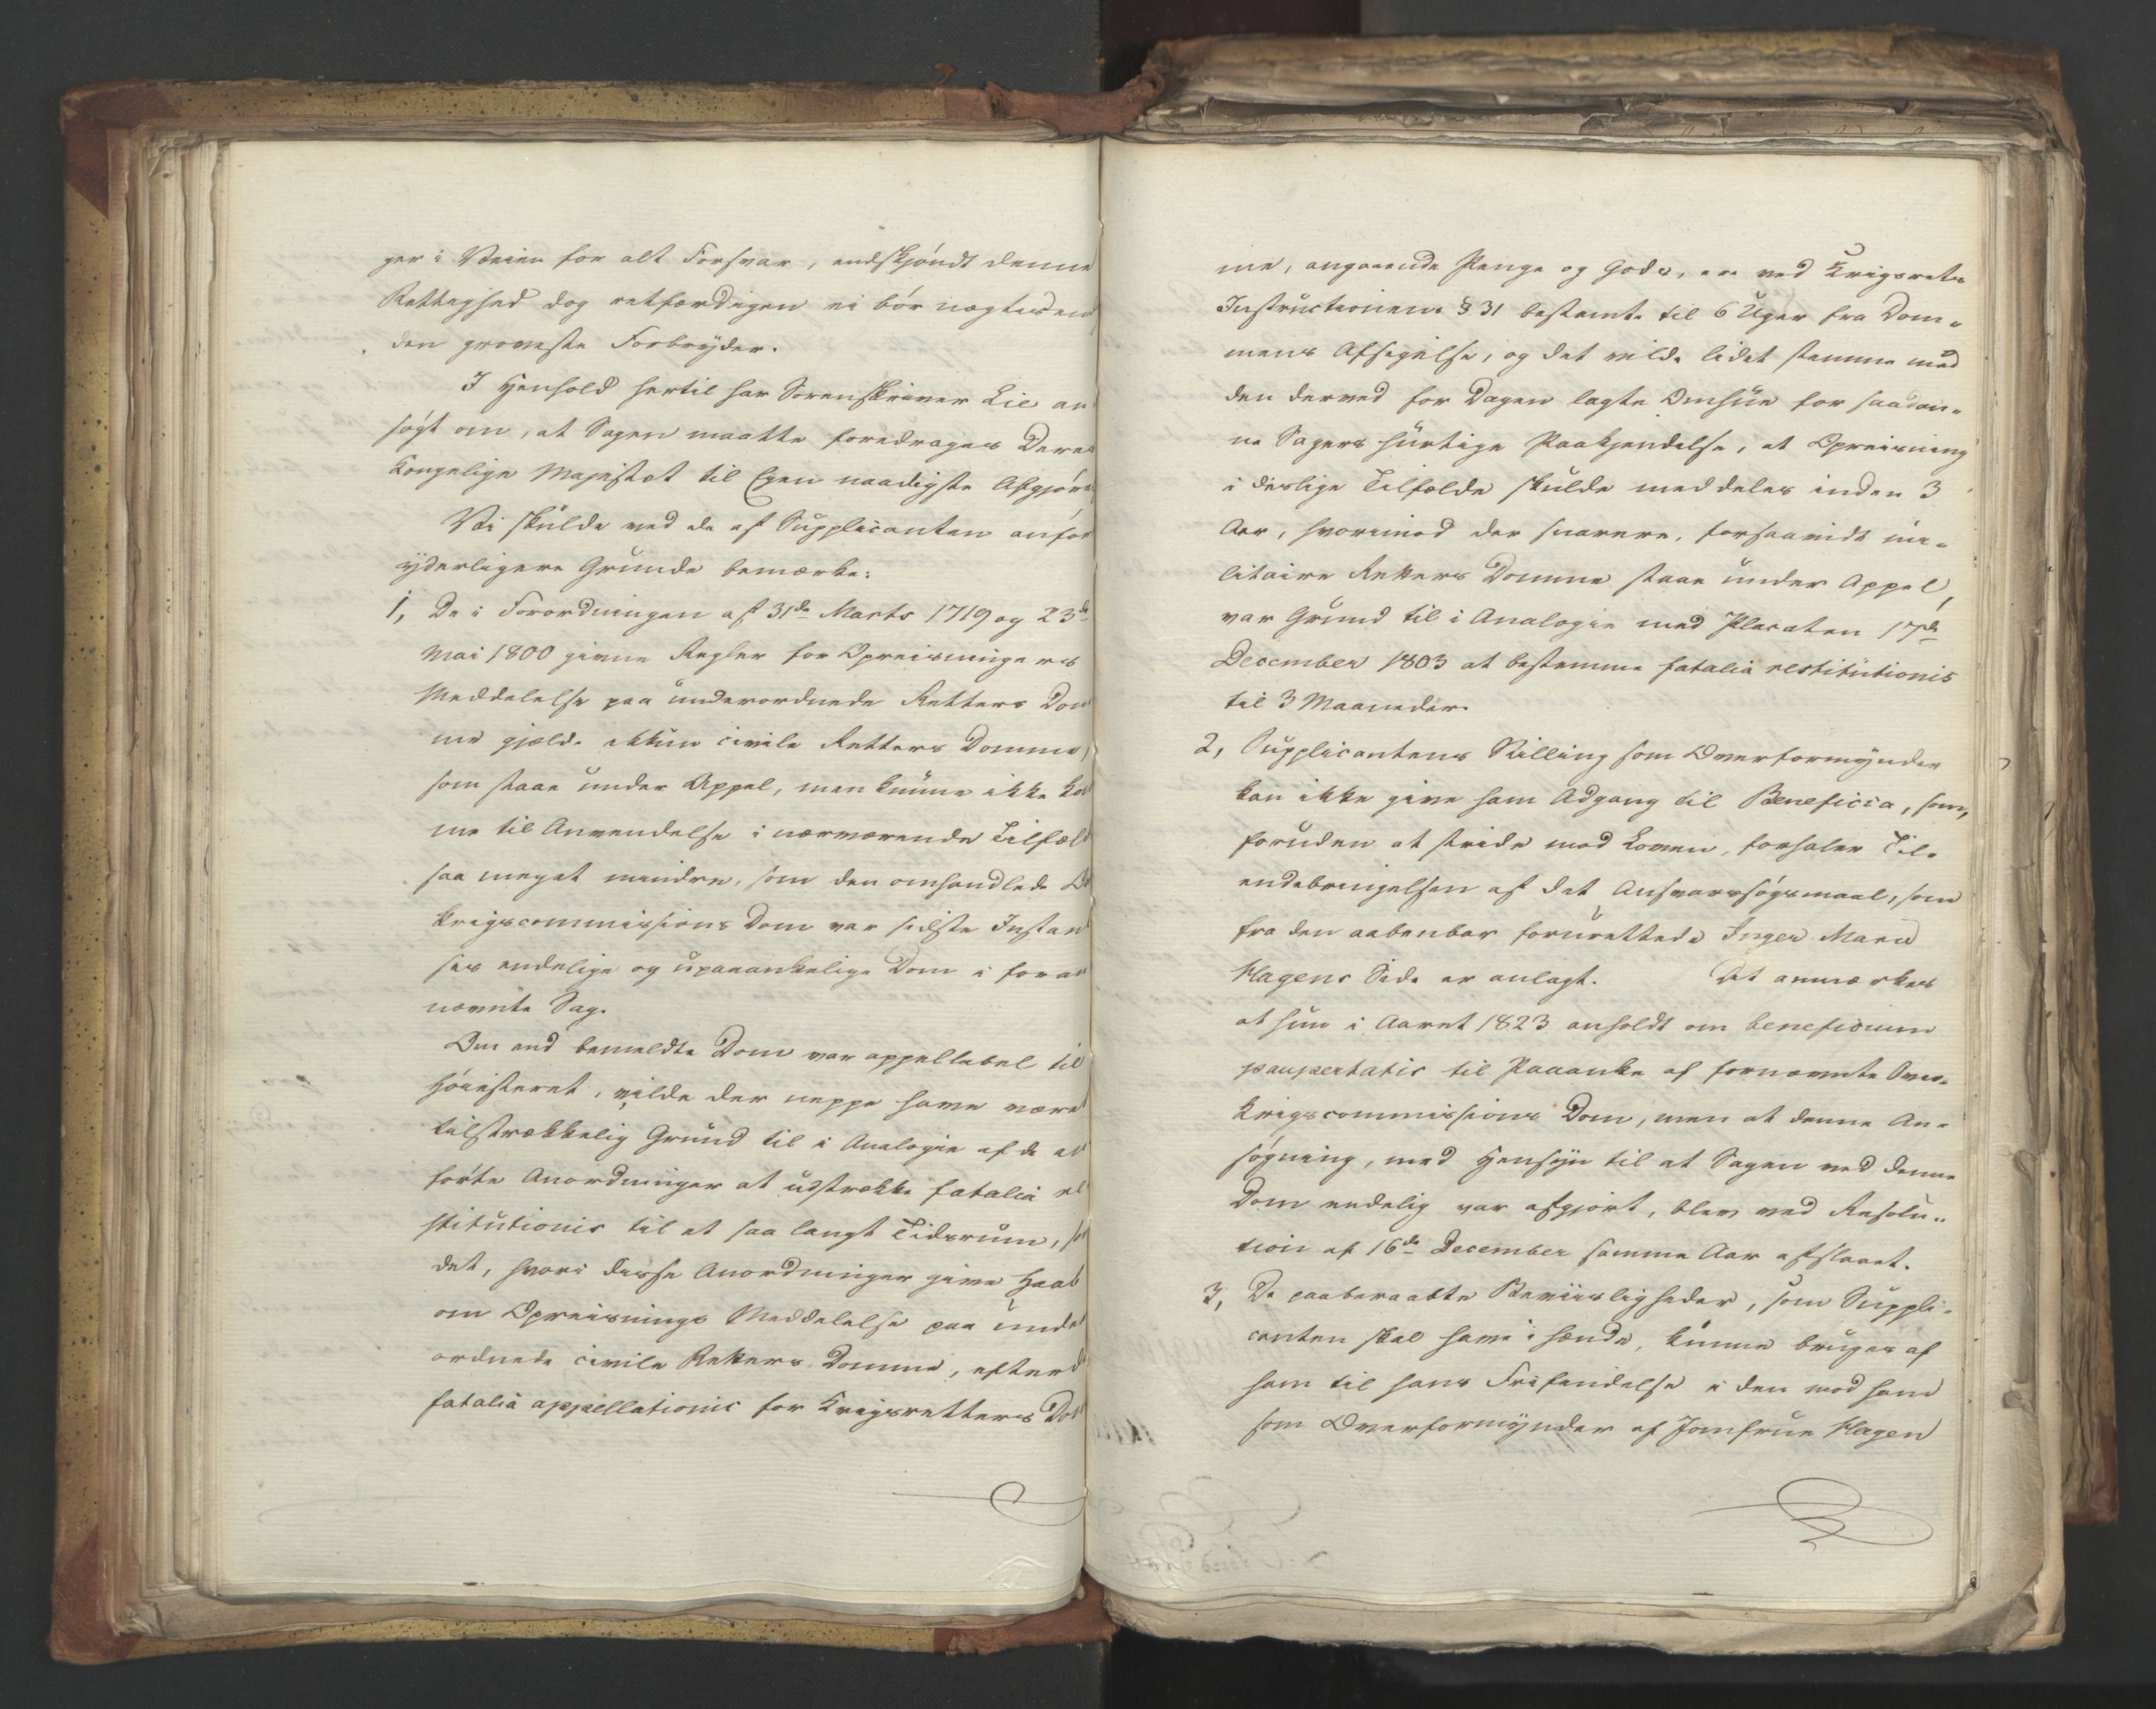 ger i Veien for alt Forsvar, endskjøndt denne
Rettighed dog retfærdigen ei bør nægtes en
den groveste Forbryder.
I Henhold hertil har Sorenskriver Lie an
søgt om, at Sagen maatte foredrages Deres
Kongelige Majestæt til Egen naadigste Afgjøre
Vi skulde ved de af Supplicanten anfør
yderligere Grunde bemærke:
1, De i Forordningen af 31de Marts 1719 og 23de
Mai 1800 givne Regler for Opreisningers
Meddelelse paa underordnede Retters Dom
me gjælde ikkun civile Retters Domme,
som staae under Appel, men kunne ikke kom
me til Anvendelse i nærværende Tilfæld
saa meget mindre, som den omhandlede Ov
krigscommissions Dom var sidste Instan
ses endelige og upaaankelige Dom i foran
nævnte Sag.
Om end bemeldte Dom var appellabel til
Høiesteret, vilde der neppe have været
tilstrækkelig Grund til i Analogie af de an
førte Anordninger at udstrække fatalia re
stitutionis til et saa langt Tidsrum, so
det, hvori disse Anordninger give Haab
om Opreisnings Meddelelse paa unde
ordnede civile Retters Domme, efterd
fatalia appellationis for Krigsretters Dom
me, angaaende Penge og Gods, ere ved Krigsrets
Instructionens § 31 bestemte til 6 Uger fra Dom-
mens Afsigelse, og det vilde lidet stemme med
den derved for Dagen lagte Omhue for saadan-
ne Sagers hurtige Paakjendelse, at Opreisning
i deslige Tilfælde skulde meddeles inden 3
Aar, hvorimod der snarere, forsaavidt mi-
litaire Retters Domme staae under Appel,
var Grund til i Analogie med Placaten 17de
December 1803 at bestemme fatalia restitutionis
til 3 Maaneder.
2, Supplicantens Stilling som Overformynder
kan ikke give ham Adgang til Beneficia, som,
foruden at stride mod Loven, forhaler Til-
endebringelsen af det Ansvarssøgsmaal, som
fra den aabenbar forurettede Inger Maria
Hagens Side er anlagt. Det anmærkes
at hun i Aaret 1823 anholdt om beneficium
paupertatis til Paaanke af fornævnte Over-
krigscommissions Dom, men at denne An-
søgning, med Hensyn til at Sagen ved denne
Dom endelig var afgjort, blev ved Resolu-
tion af 16de December samme Aar afslaaet.
3, De paaberaabte Beviisligheder, som Suppli-
canten skal have i hænde, kunne bruges af
ham til hans Frifindelse i den mod ham
som Overformynder af Jomfrue Hagen